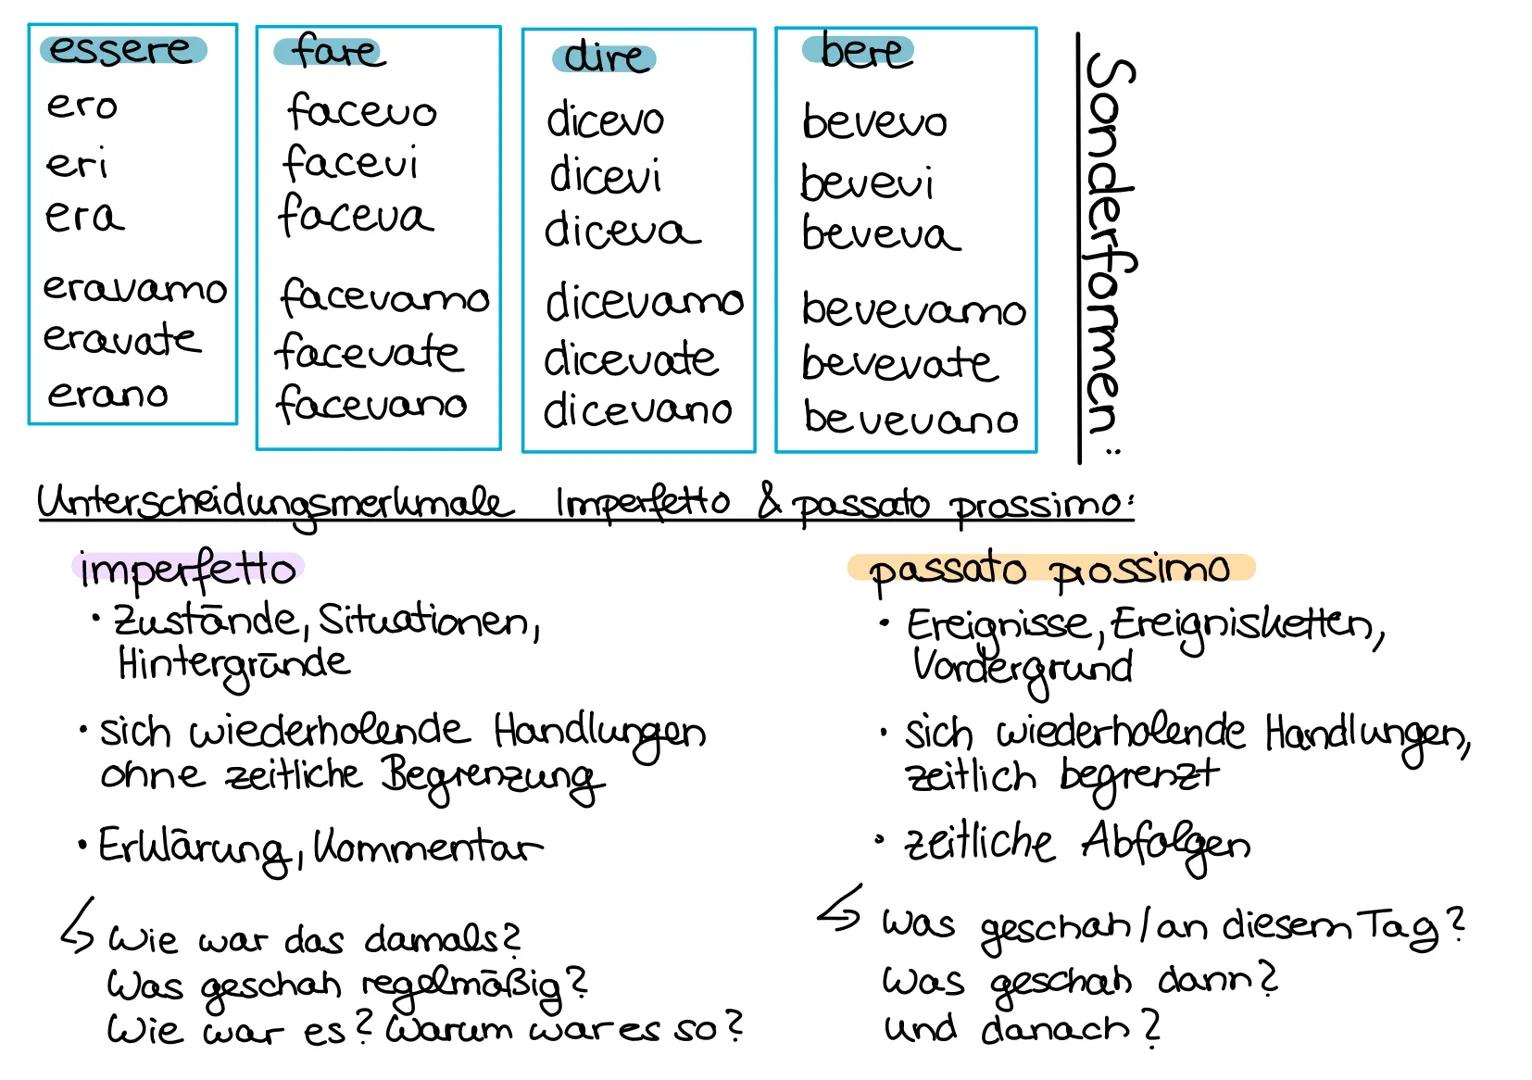 essere
ero
eri
era
eravamo
eravate
erano
fare
facevo
facevi
faceva
facevamo
facevate
facevano
dire
dicevo
dicevi
diceva
dicevamo
dicevate
dicevano
bere
bevevo
bevevi
beveva
bevevamo
bevevate
bevevano
Sonderformen:
Unterscheidungsmerkmale Imperfetto & passato prossimo:
imperfetto
• Zustände, Situationen,
Hintergründe
• sich wiederholende Handlungen
ohne zeitliche Begrenzung
• Erklärung, Kommentar
↳ Wie war das damals?
Was geschah regelmäßig?
Wie war es? Warum war es so?
passato prossimo
• Ereignisse, Ereignisketten,
Vordergrund
• sich wiederholende Handlungen,
zeitlich begrenzt
• zeitliche Abfolgen
↳ Was geschah/an diesem Tag?
Was geschah dann?
und danach?